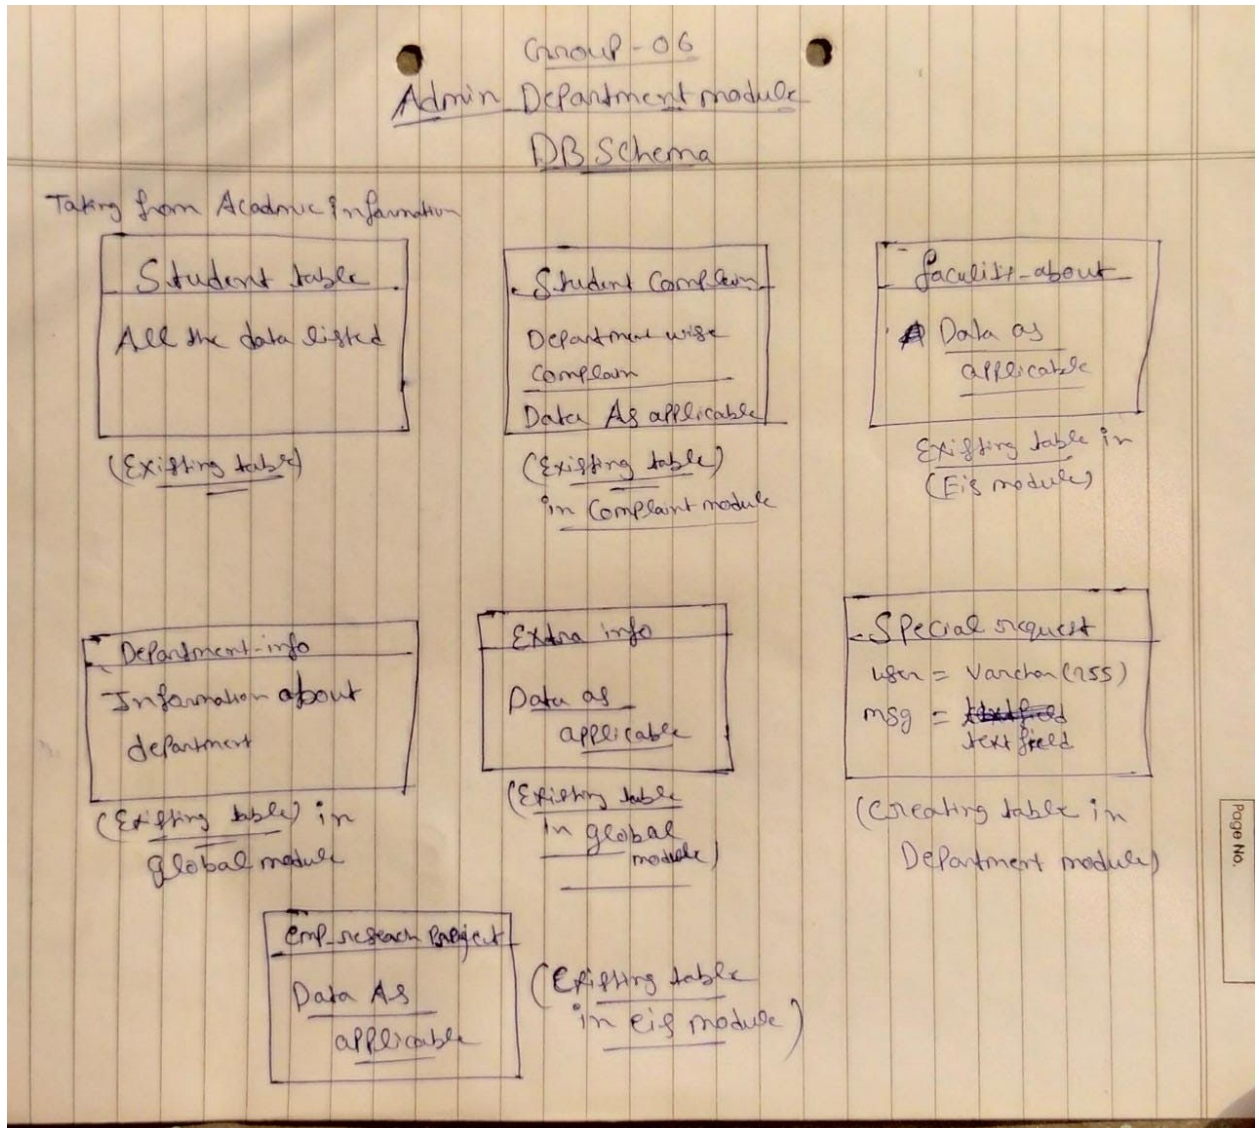 Group-06
Admin Department module
DB Schema
Taking from Acadmic Information
Student table
All the data listed
(Existing table)
Student Complain
Department wise
Complain
Data As applicable
(Existing table)
in Complaint module
faculity-about
Data as
applicable
Existing table in
(Eis module)
Department-info
Information about
department
(Existing table) in
global module
Extra info
Data as
applicable
(Existing table
in global
module)
Special request
user = Varchar(255)
msg = textfield
text field
(Creating table in
Department module)
Emp_reseach Project
Data As
applicable
(Existing table
in eis module)
Page No.